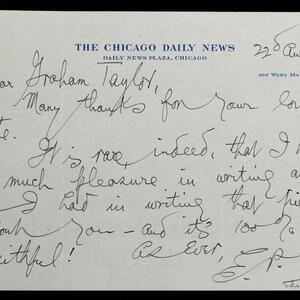 THE CHICAGO DAILY NEWS
DAILY NEWS PLAZA, CHICAGO
22d Au
400 WEST MA
ar Graham Taylor,
Many thanks for your lov
te.
It is rare, indeed, that I h
much pleasure in writing a
I had in writing that pie
out you - and it's 100%
ithful!
As Ever,
E.P.